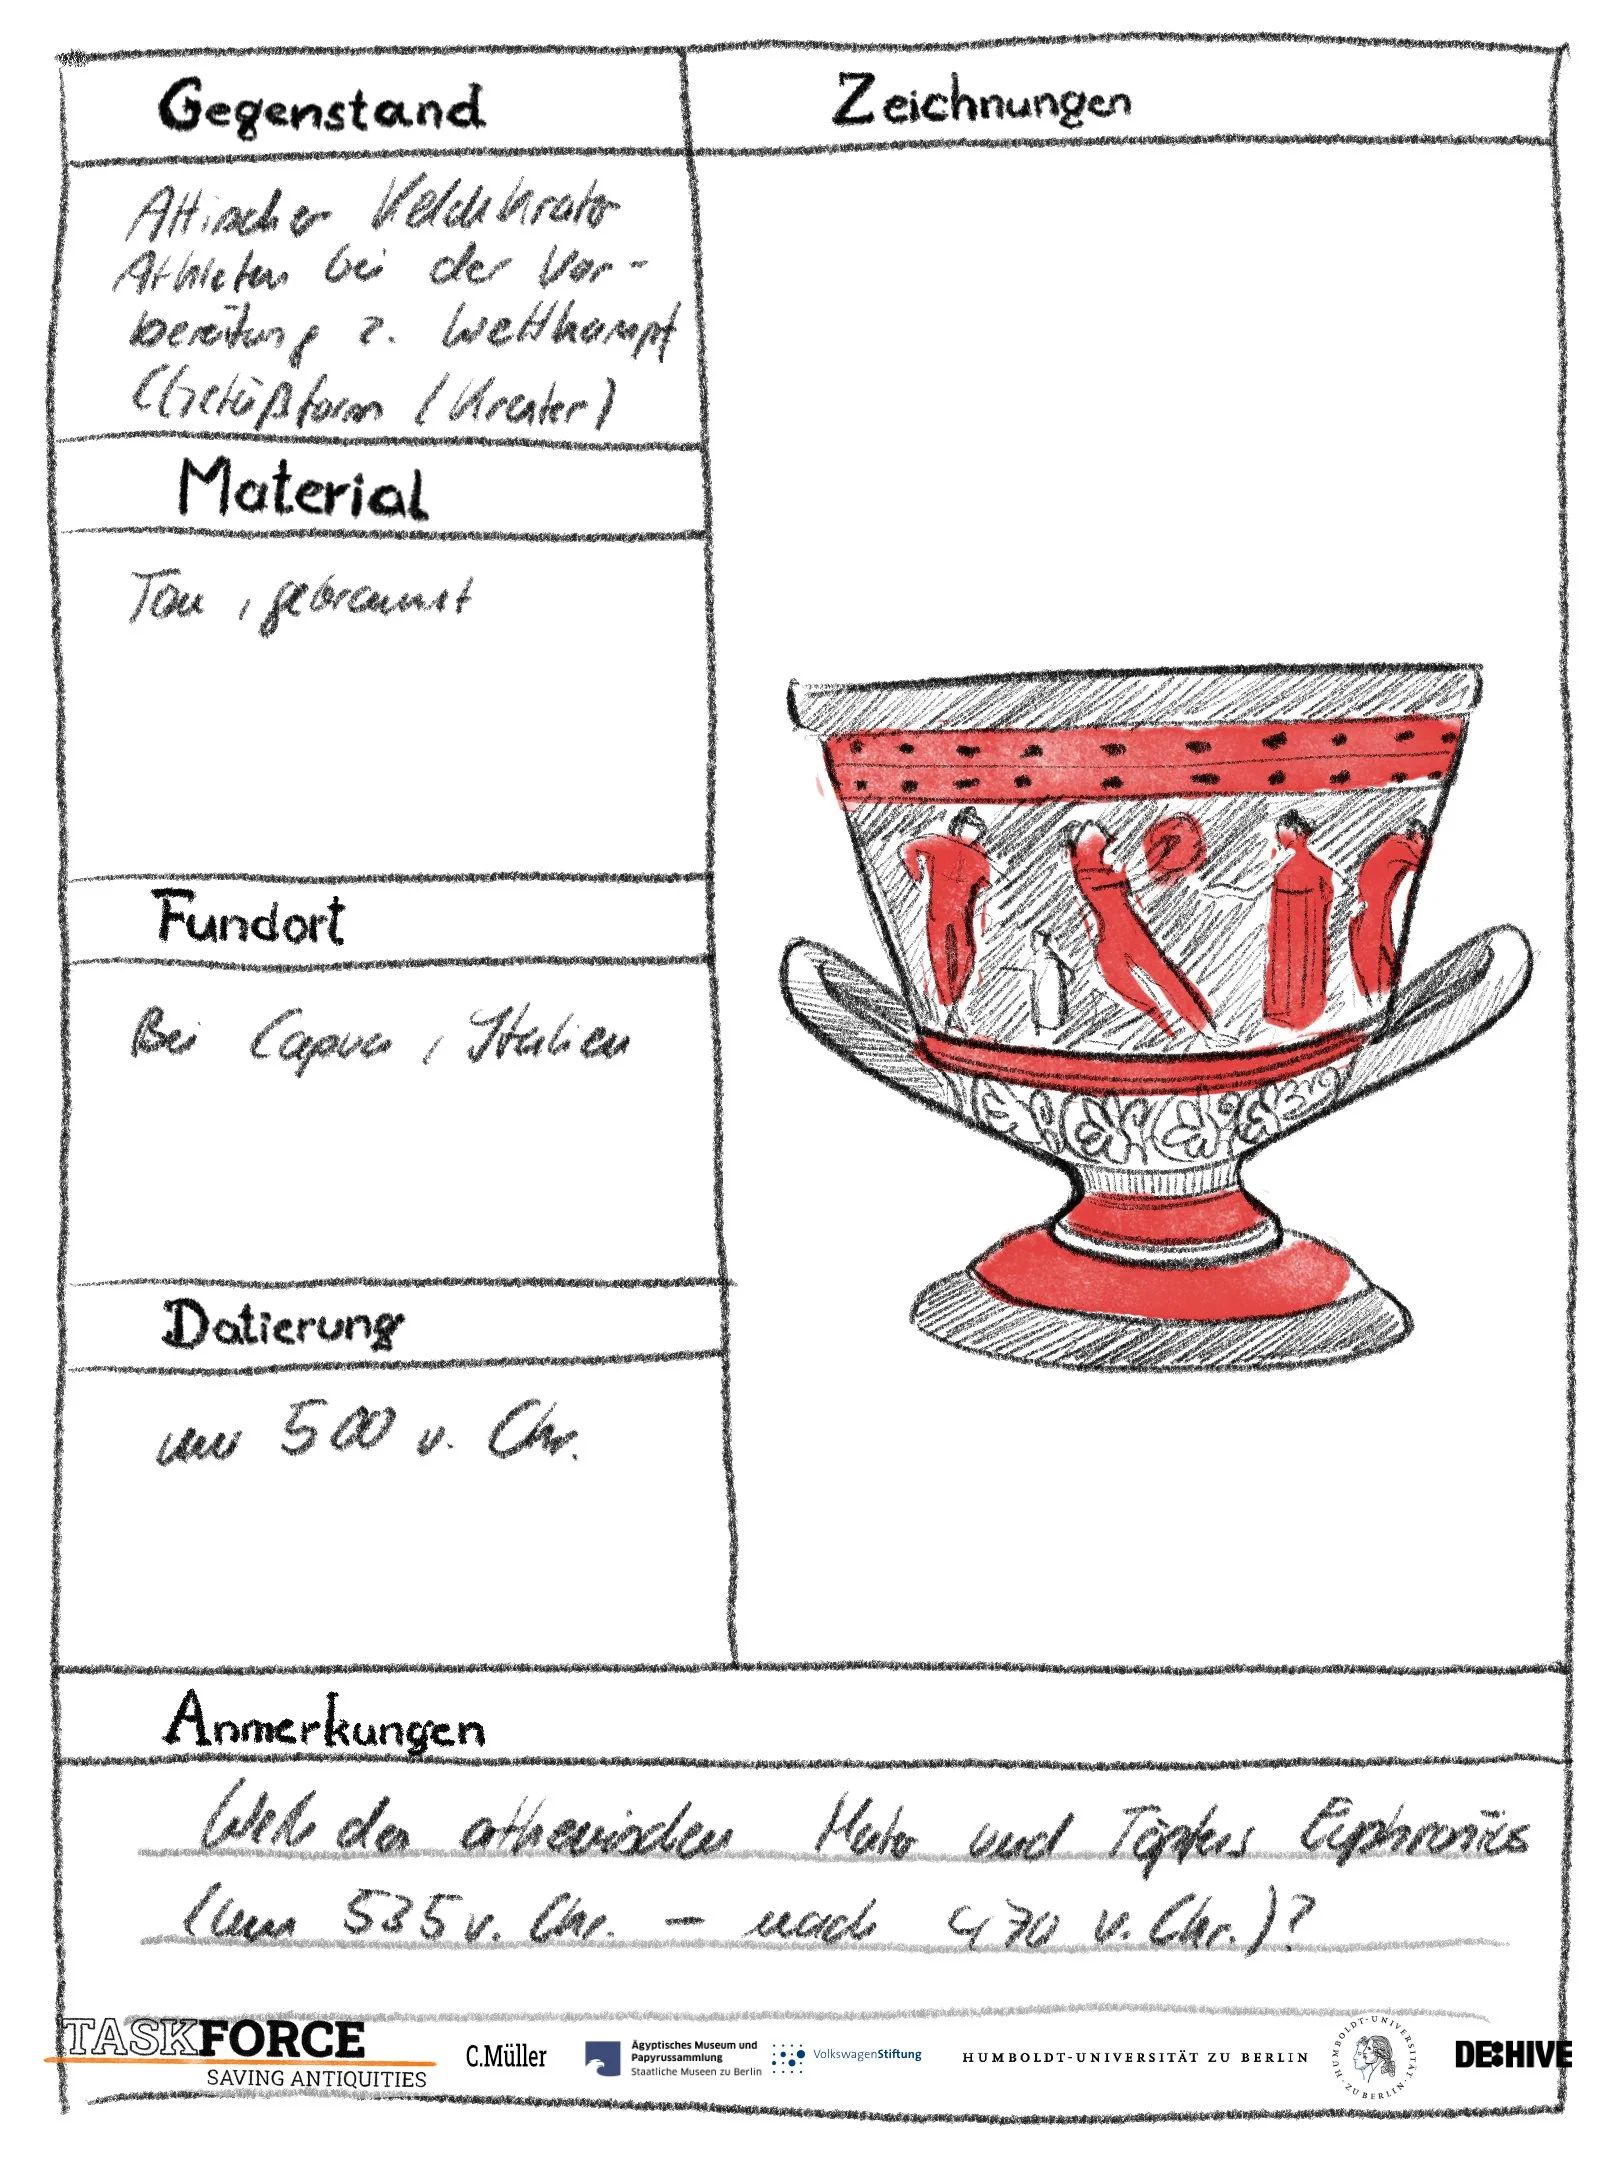 Gegenstand
Attischer Kelchkrater
Athleten bei der Vor-
bereitung z. Wettkampf
(Gefäßform (Krater)
Material
Ton, gebrannt
Fundort
Bei Capua, Italien
Datierung
um 500 v. Chr.
Zeichnungen
Anmerkungen
Werk des athenischen Maler und Töpfers Euphronios
(um 535 v. Chr. – nach 470 v. Chr.)?
TASKFORCE
SAVING ANTIQUITIES
C.Müller
Ägyptisches Museum und
Papyrussammlung
Staatliche Museen zu Berlin
VolkswagenStiftung
HUMBOLDT-UNIVERSITÄT ZU BERLIN
HUMBOLDT-UNIVERSITÄT ZU BERLIN
DE:HIVE